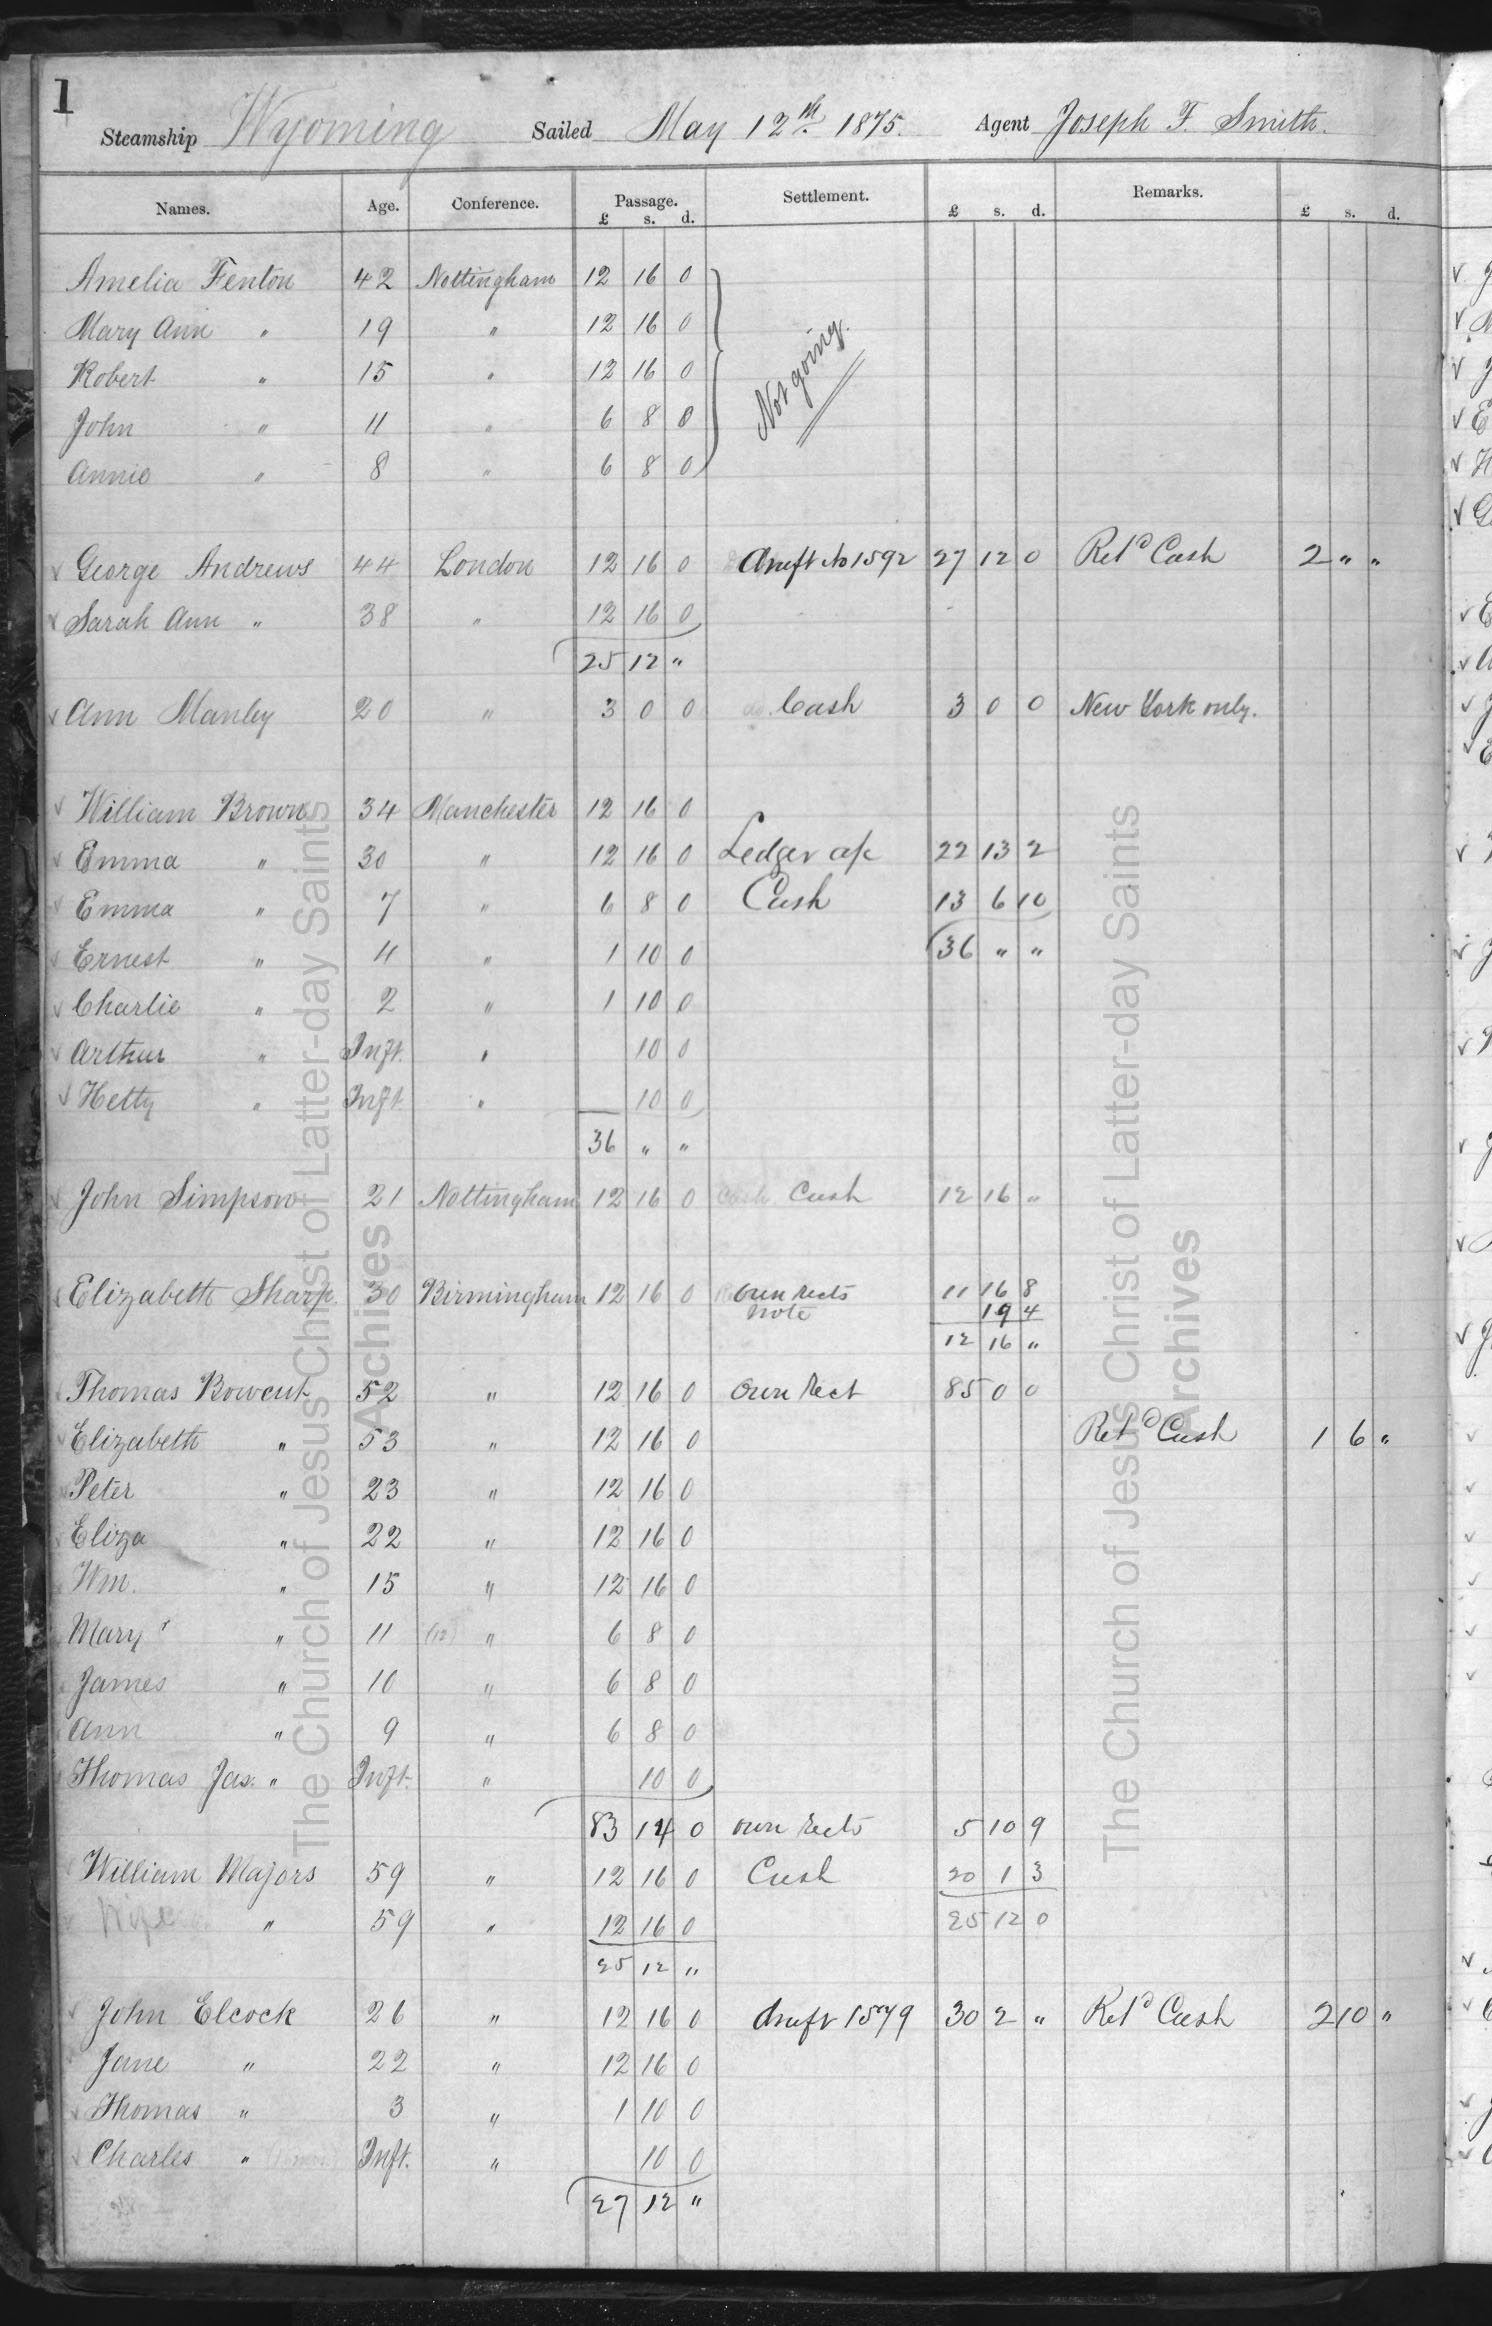 1
Steamship Wyoming Sailed May 12th 1875. Agent Joseph F. Smith.
Names. Age. Conference. Passage. Settlement. Remarks.
£ s. d. £ s. d. £ s. d.
Amelia Fenton 42 Nottingham 12 16 0
Mary Ann " 19 " 12 16 0
Robert " 15 " 12 16 0
John " 11 " 6 8 0
Annie " 8 " 6 8 0
Not going.
√ George Andrews 44 London 12 16 0 draft No 1592 27 12 0 Retd Cash 2 " "
√ Sarah Ann " 38 " 12 16 0
25 12 "
√ Ann Manley 20 " 3 0 0 Cash 3 0 0 New York only.
√ William Brown 34 Manchester 12 16 0
√ Emma " 30 " 12 16 0 Ledger a/c 22 13 2
√ Emma " 7 " 6 8 0 Cash 13 6 10
√ Ernest " 4 " 1 10 0 36 " "
√ Charlie " 2 " 1 10 0
√ Arthur " Inft. " 10 0
√ Hetty " Inft " 10 0
36 " "
√ John Simpson 21 Nottingham 12 16 0 Cash Cash 12 16 "
√ Elizabeth Sharp. 30 Birmingham 12 16 0 own rects 11 16 8
note 19 4
12 16 "
√ Thomas Bowcut 52 " 12 16 0 own rect 85 0 0
√ Elizabeth " 53 " 12 16 0 Retd Cash 1 6 "
Peter " 23 " 12 16 0
Eliza " 22 " 12 16 0
Wm. " 15 " 12 16 0
Mary " 11 (12) " 6 8 0
James " 10 " 6 8 0
Ann " 9 " 6 8 0
Thomas Jas. " Inft. " 10 0
83 14 0 own rects 5 10 9
William Majors 59 " 12 16 0 Cash 20 1 3
Wife " 59 " 12 16 0 25 12 0
25 12 "
√ John Elcock 26 " 12 16 0 draft 1579 30 2 " Retd Cash 2 10 "
Jane " 22 " 12 16 0
√ Thomas " 3 " 1 10 0
√ Charles " Inft. " 10 0
27 12 "
The Church of Jesus Christ of Latter-day Saints
Archives
The Church of Jesus Christ of Latter-day Saints
Archives